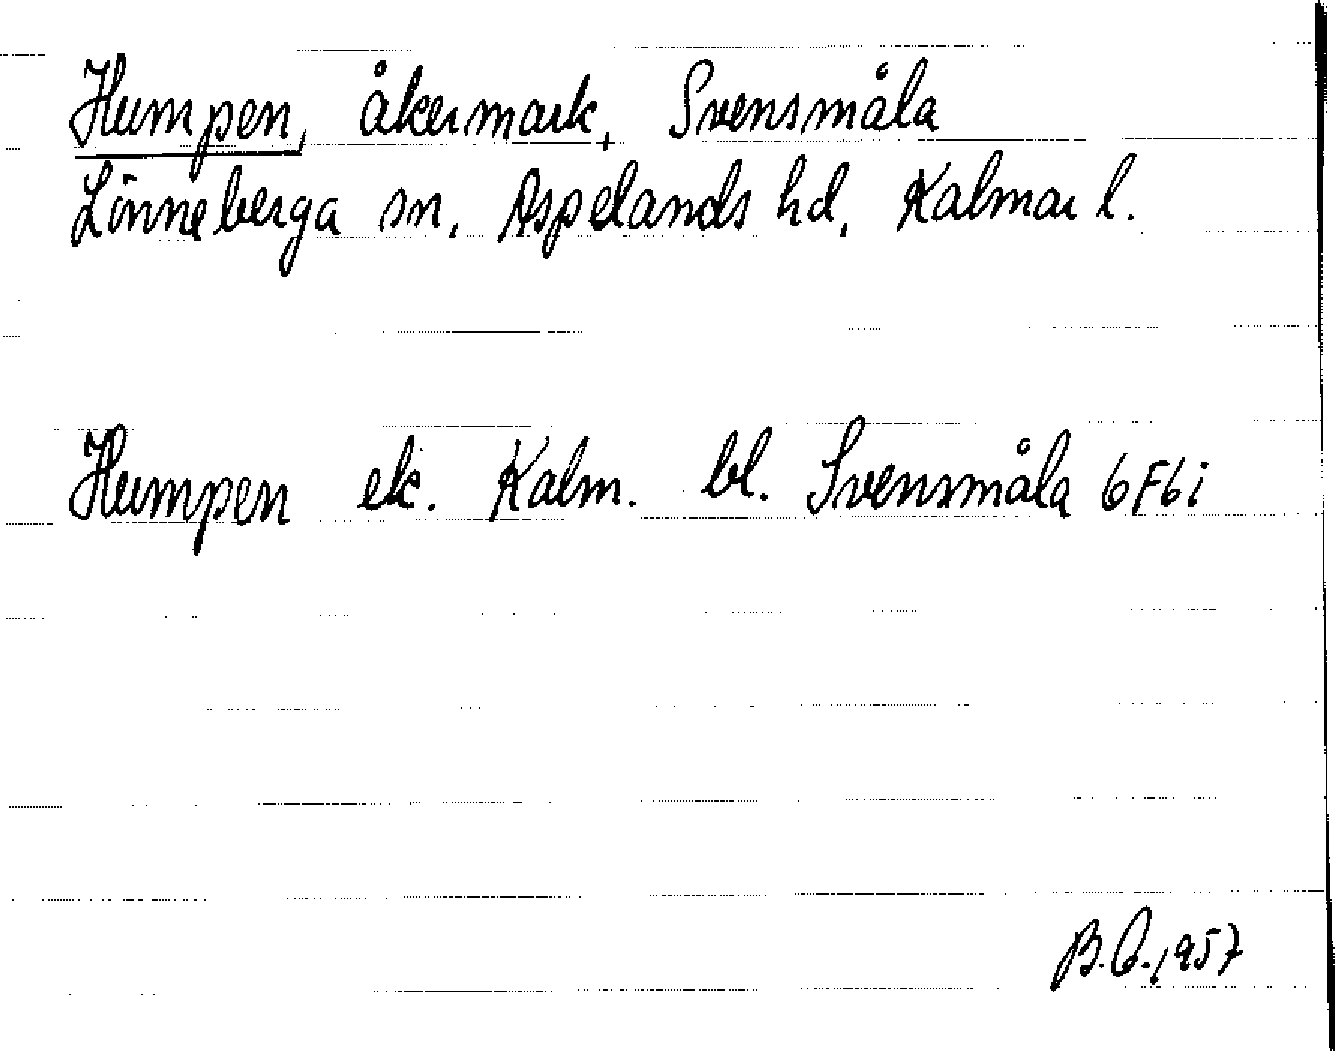 Humpen, åkermark, Svensmåla
Lönneberga sn, Aspelands hd, Kalmar l.
Humpen ek. Kalm. bl. Svensmåla 6F6i
B.O. 1957